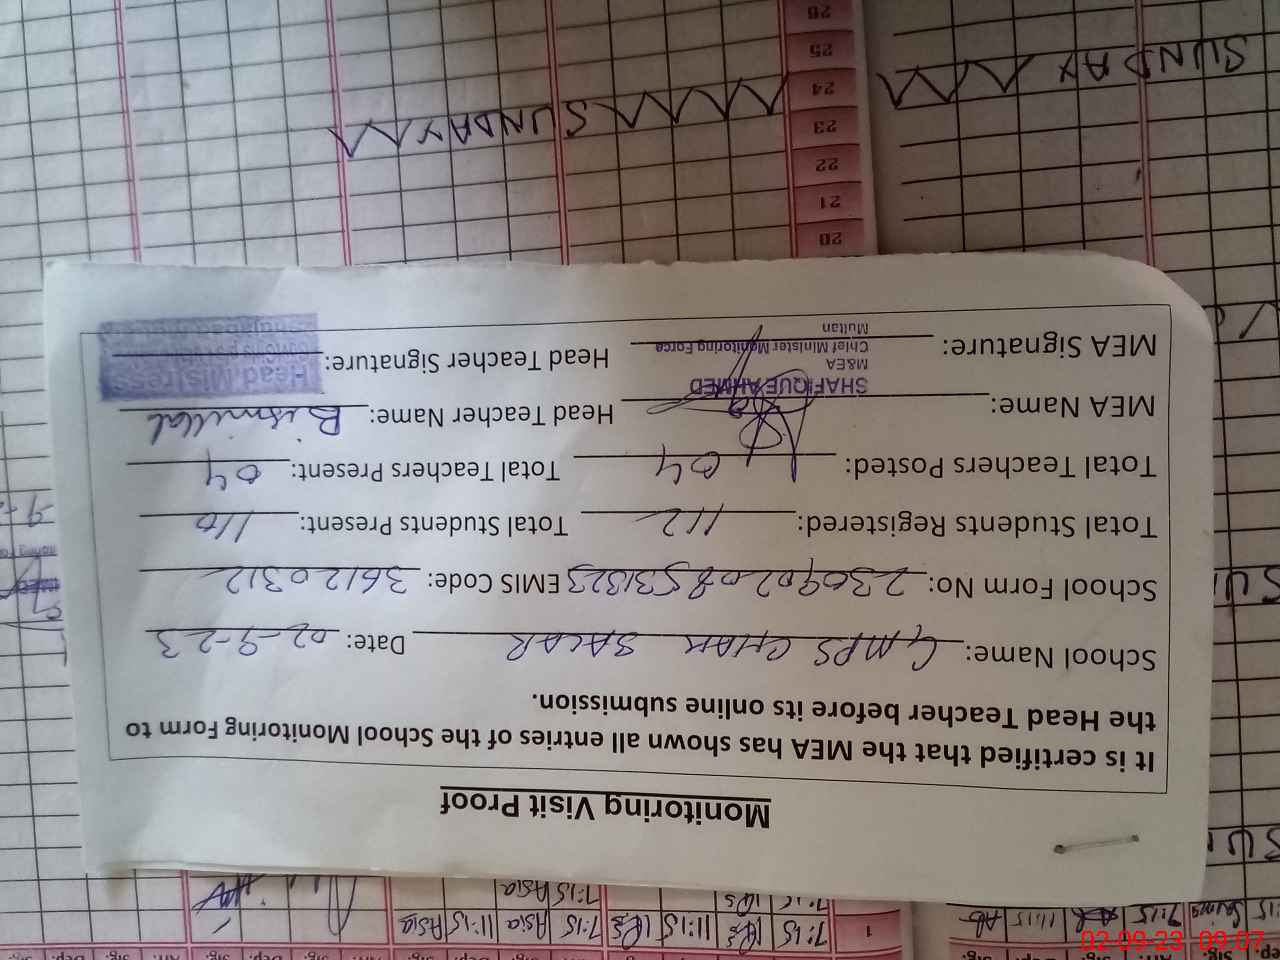 Monitoring Visit Proof
It is certified that the MEA has shown all entries of the School Monitoring Form to
the Head Teacher before its online submission.
School Name: GMPS CHAH SALAR Date: 02-9-23
School Form No: 23090208531323 EMIS Code: 36120312
Total Students Registered: 112 Total Students Present: 110
Total Teachers Posted: 04 Total Teachers Present: 04
MEA Name: Head Teacher Name: Bismillah
SHAFIQUE AHMED
M&EA
Chief Minister Monitoring Force
Multan
MEA Signature: Head Teacher Signature:
Head Mistress
1
7:15 11:15 7:15 Asia 11:15 Asia
7:15 Asia
7:15 11:15 AB
20
21
22
23
24
25
26
SUNDAY
SUNDAY
02-09-23 09:07